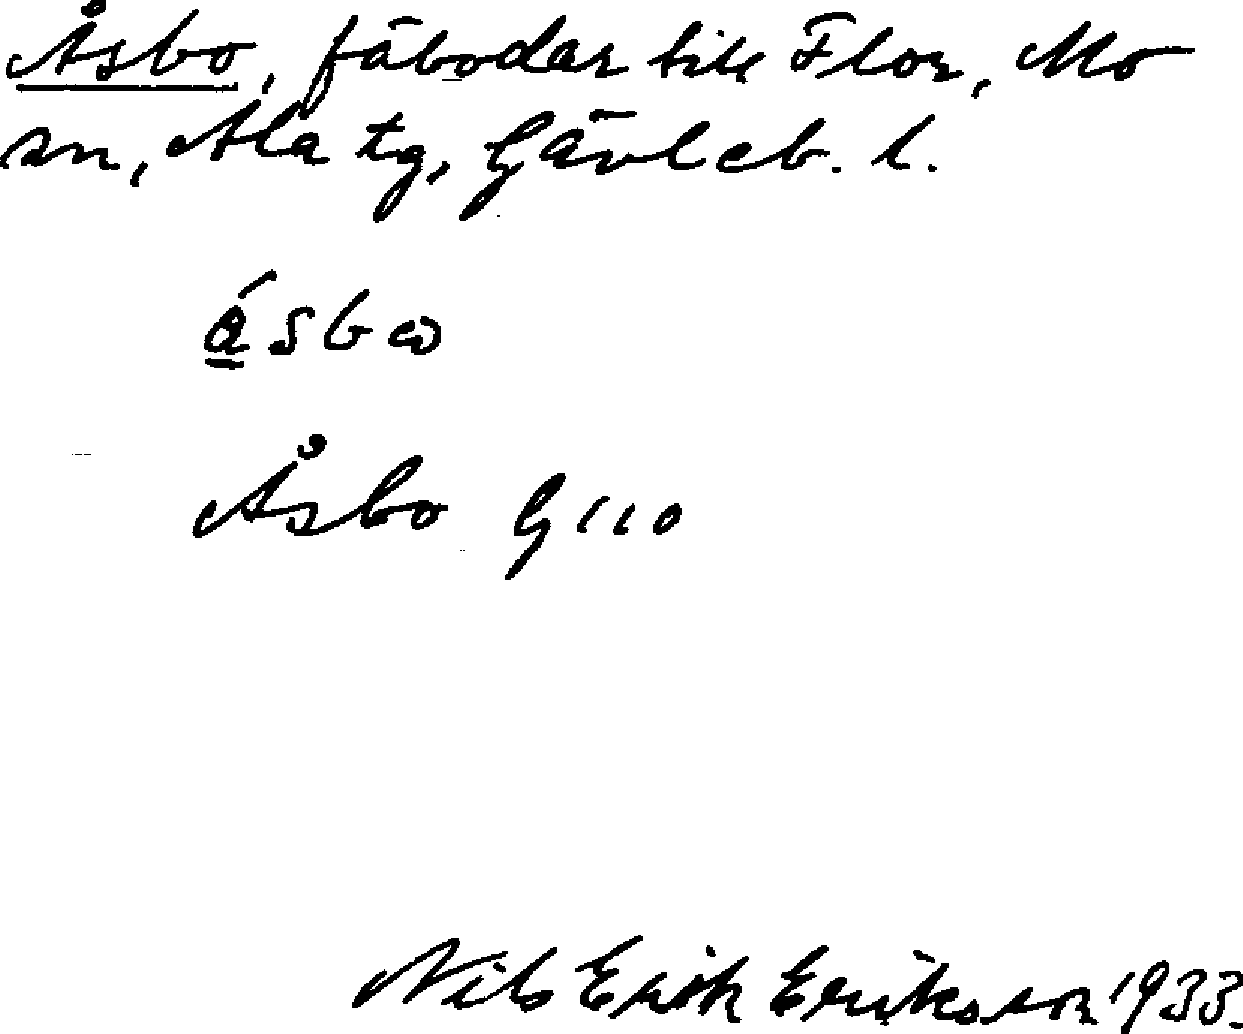 Åsbo, fäbodar till Flor, Mo
sn, Ala tg, Gävleb. l.
ásbω
Åsbo G 110
Nils Erik Eriksson 1933.